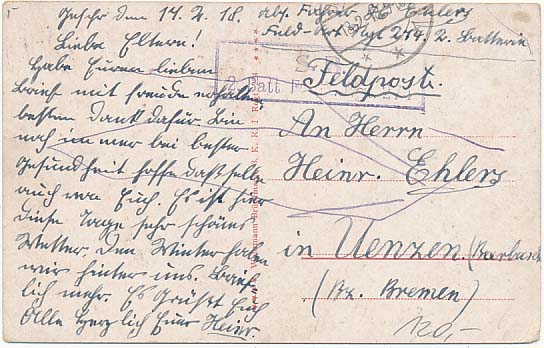 Geschr. den 14.2.18.
Liebe Eltern!
Habe Euren lieben
Brief mit Freude erhalten
besten Dank dafür. Bin
noch immer bei bester
Gesundheit hoffe dasselbe
auch von Euch. Es ist hier
diese Tage sehr schönes
Wetter. Den Winter haben
wir hinter uns.
lich mehr. Es Grüßt Euch
Alle herzlich Euer Heinr.
Abs. Fahrer Ehlers
Feld-Art. Rgt 274. 2. Batterie
2. Batt
Feldpost.
An Herrn
Heinr. Ehlers
in Uenzen
(Bz. Bremen)
120,-